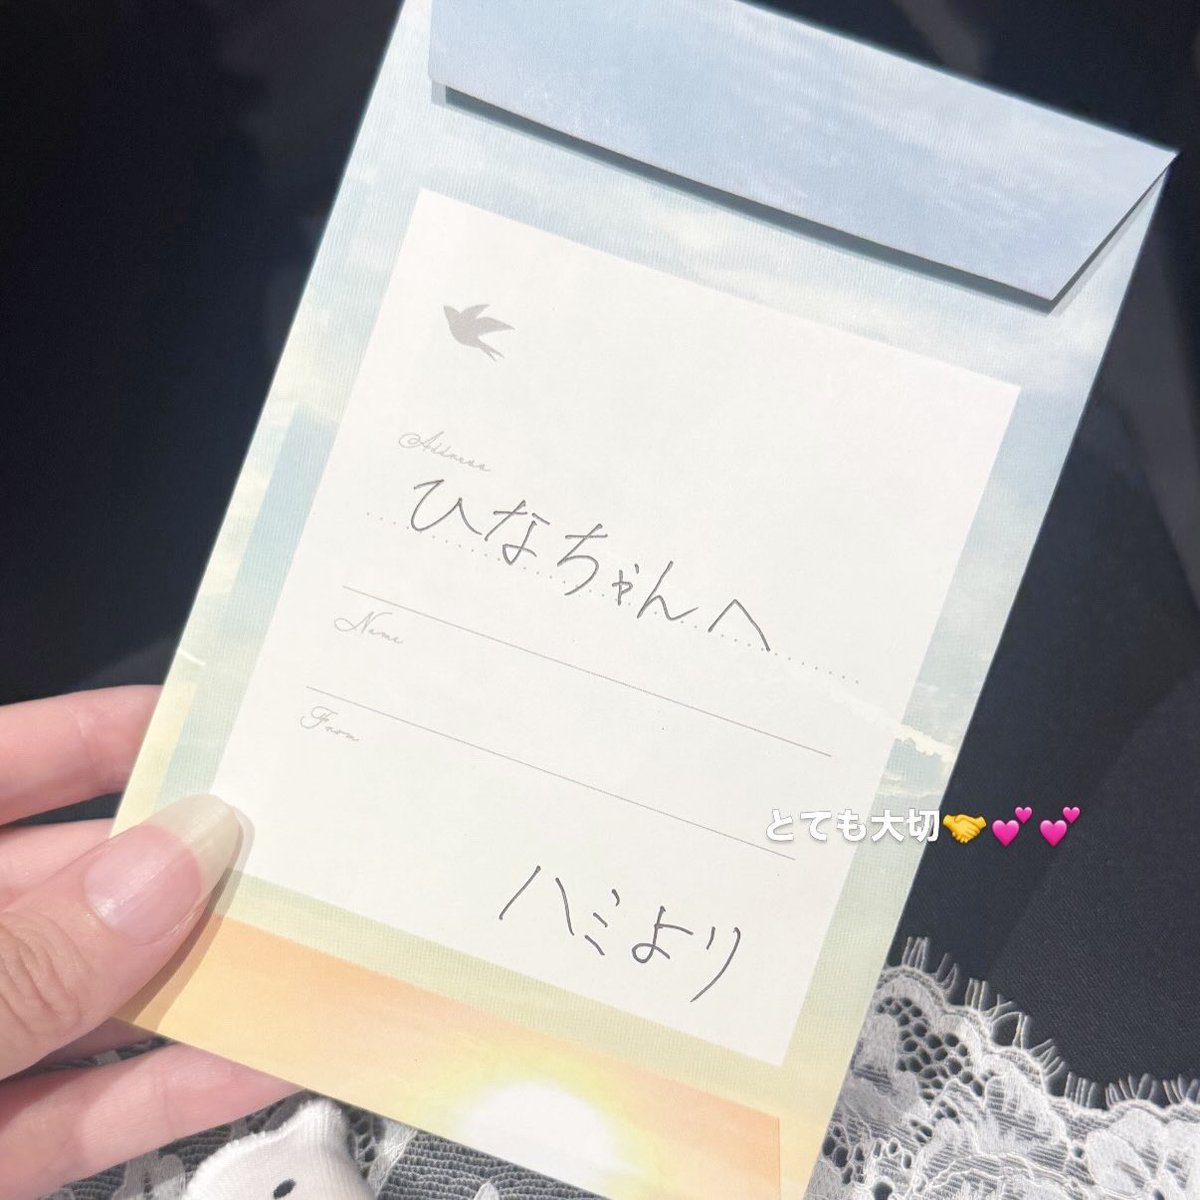 Address
ひなちゃんへ
Name
From
とても大切🤝💕💕
ハミより